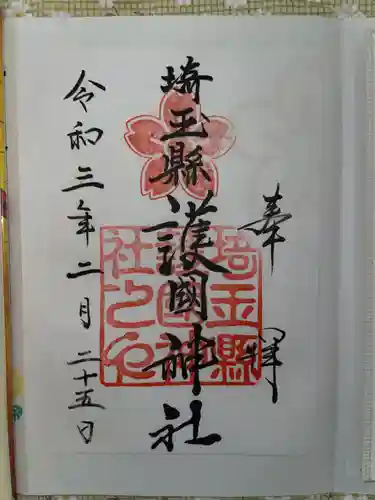 奉拝
埼玉縣護國神社
埼玉縣護國神社之印
令和三年二月二十五日